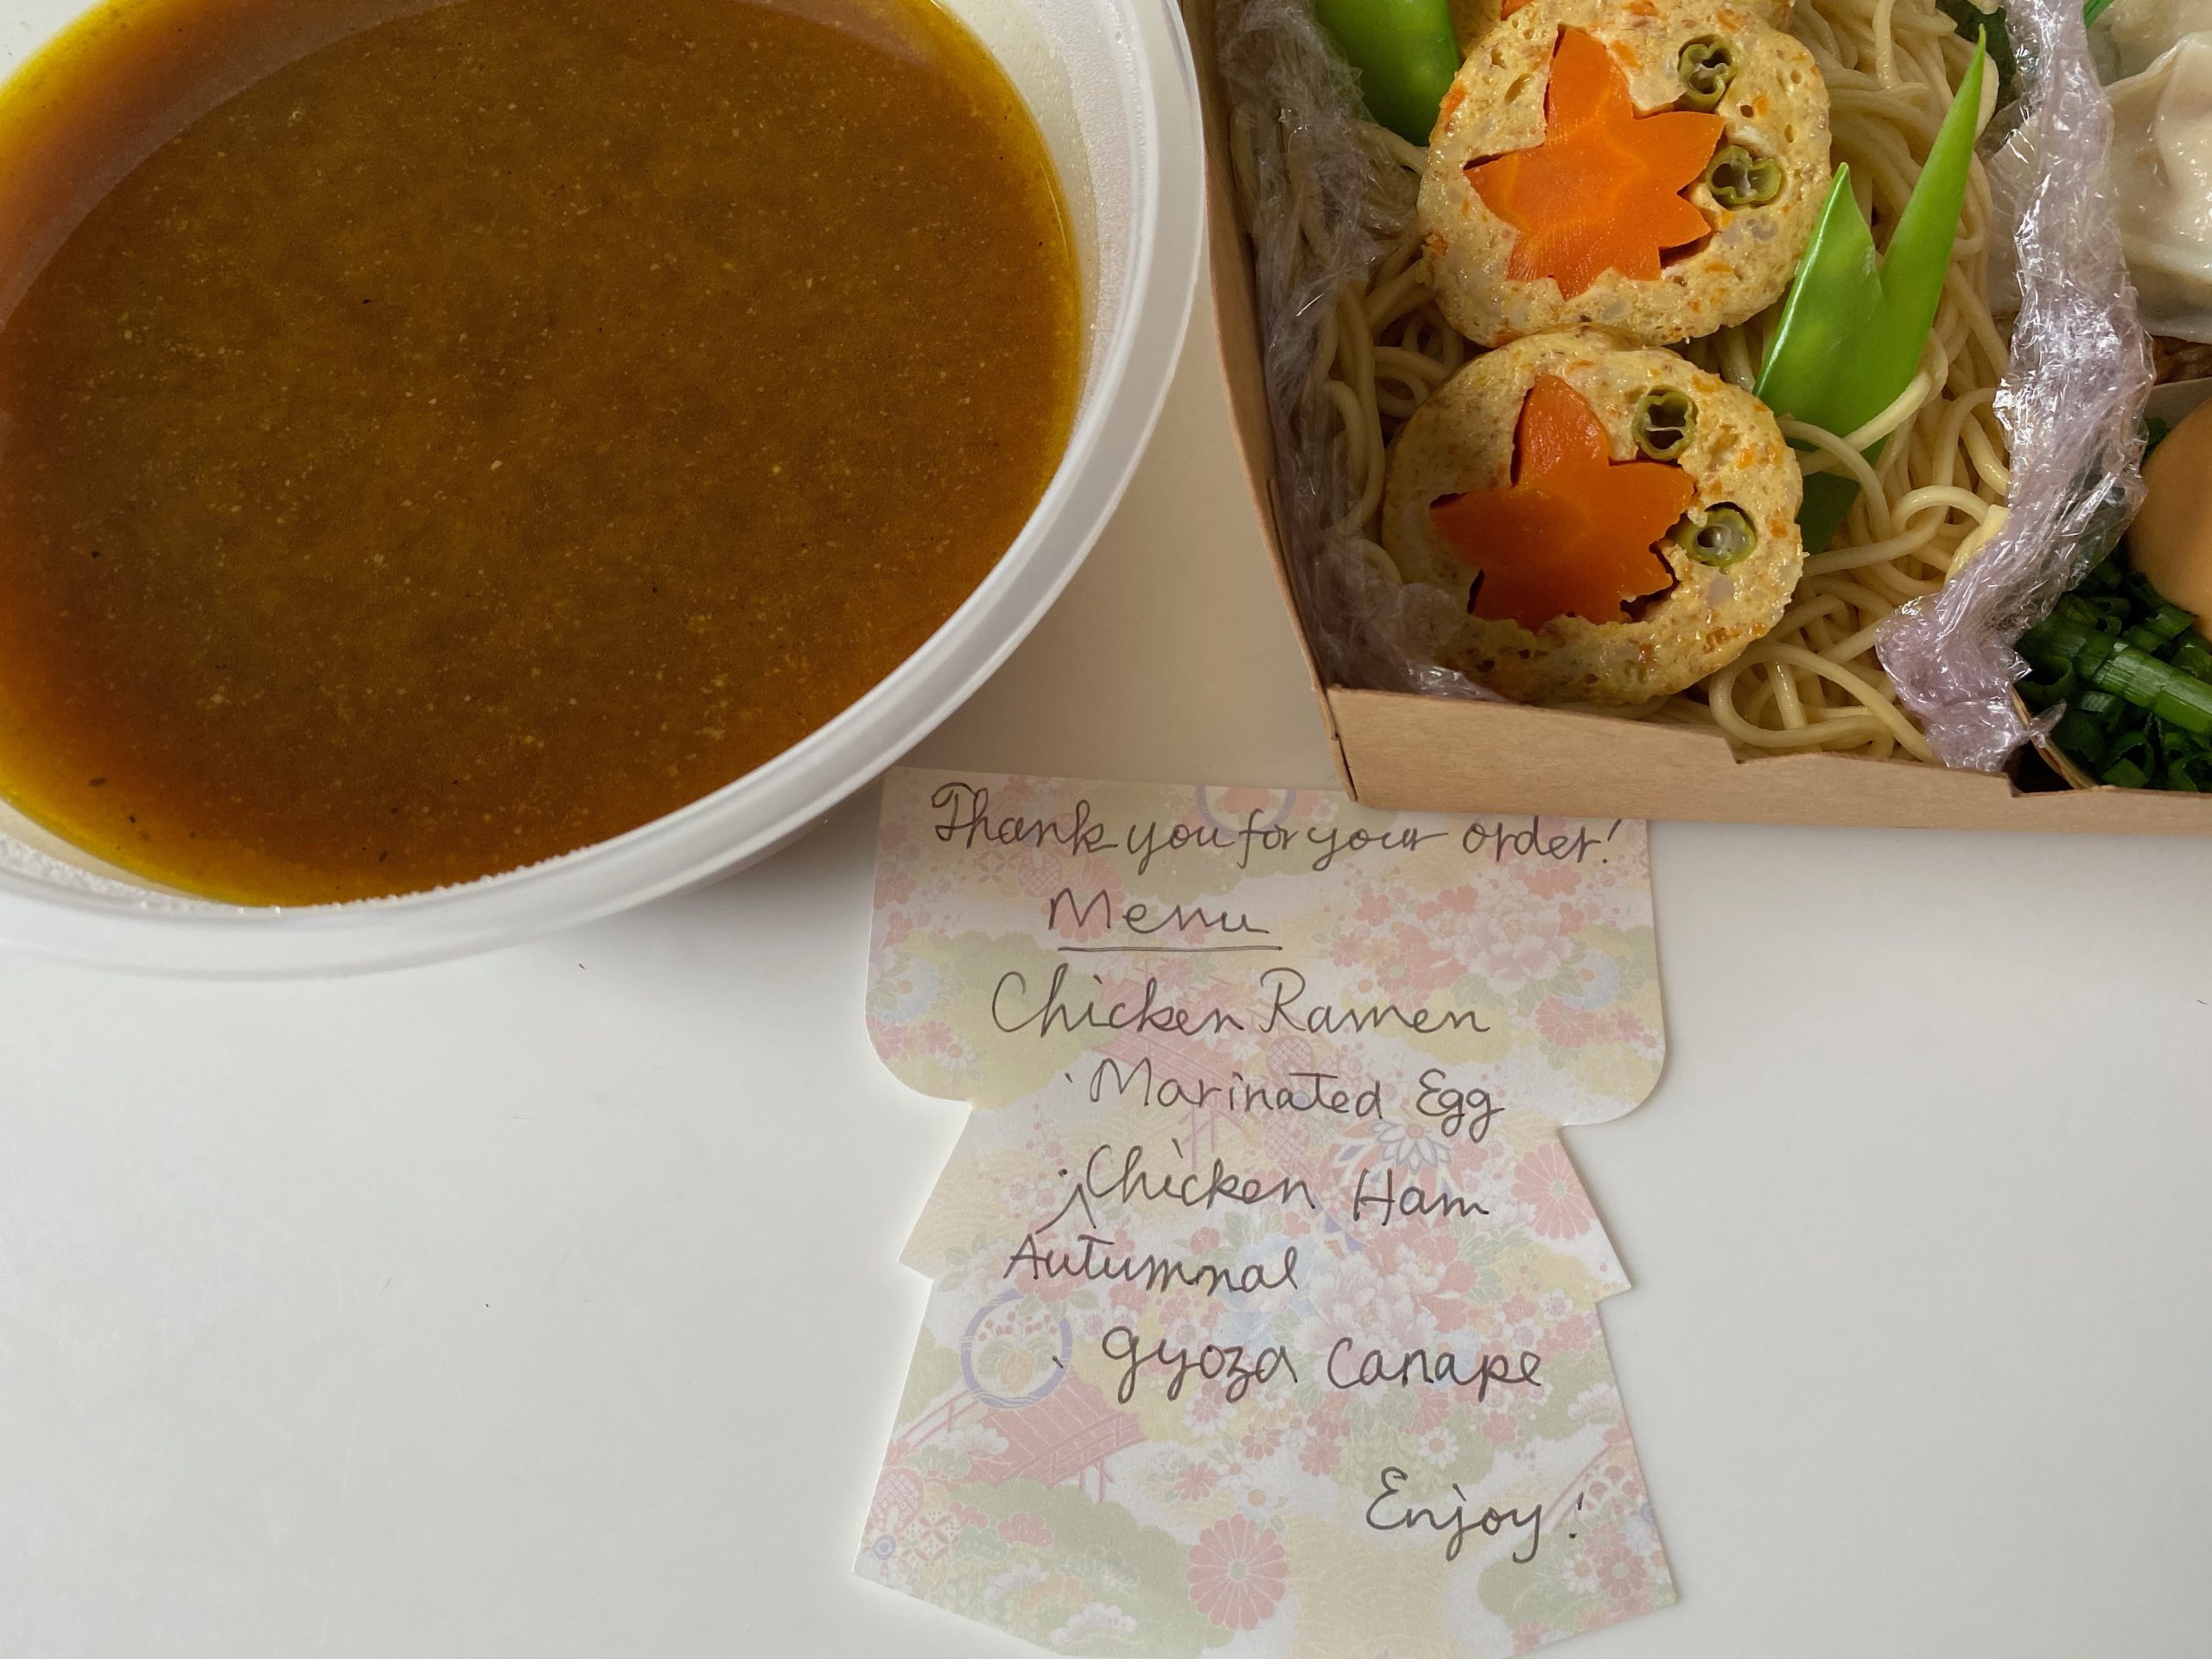 Thank you for your order!
Menu
Chicken Ramen
· Marinated Egg
· Chicken Ham
Autumnal
· Gyoza Canape
Enjoy!